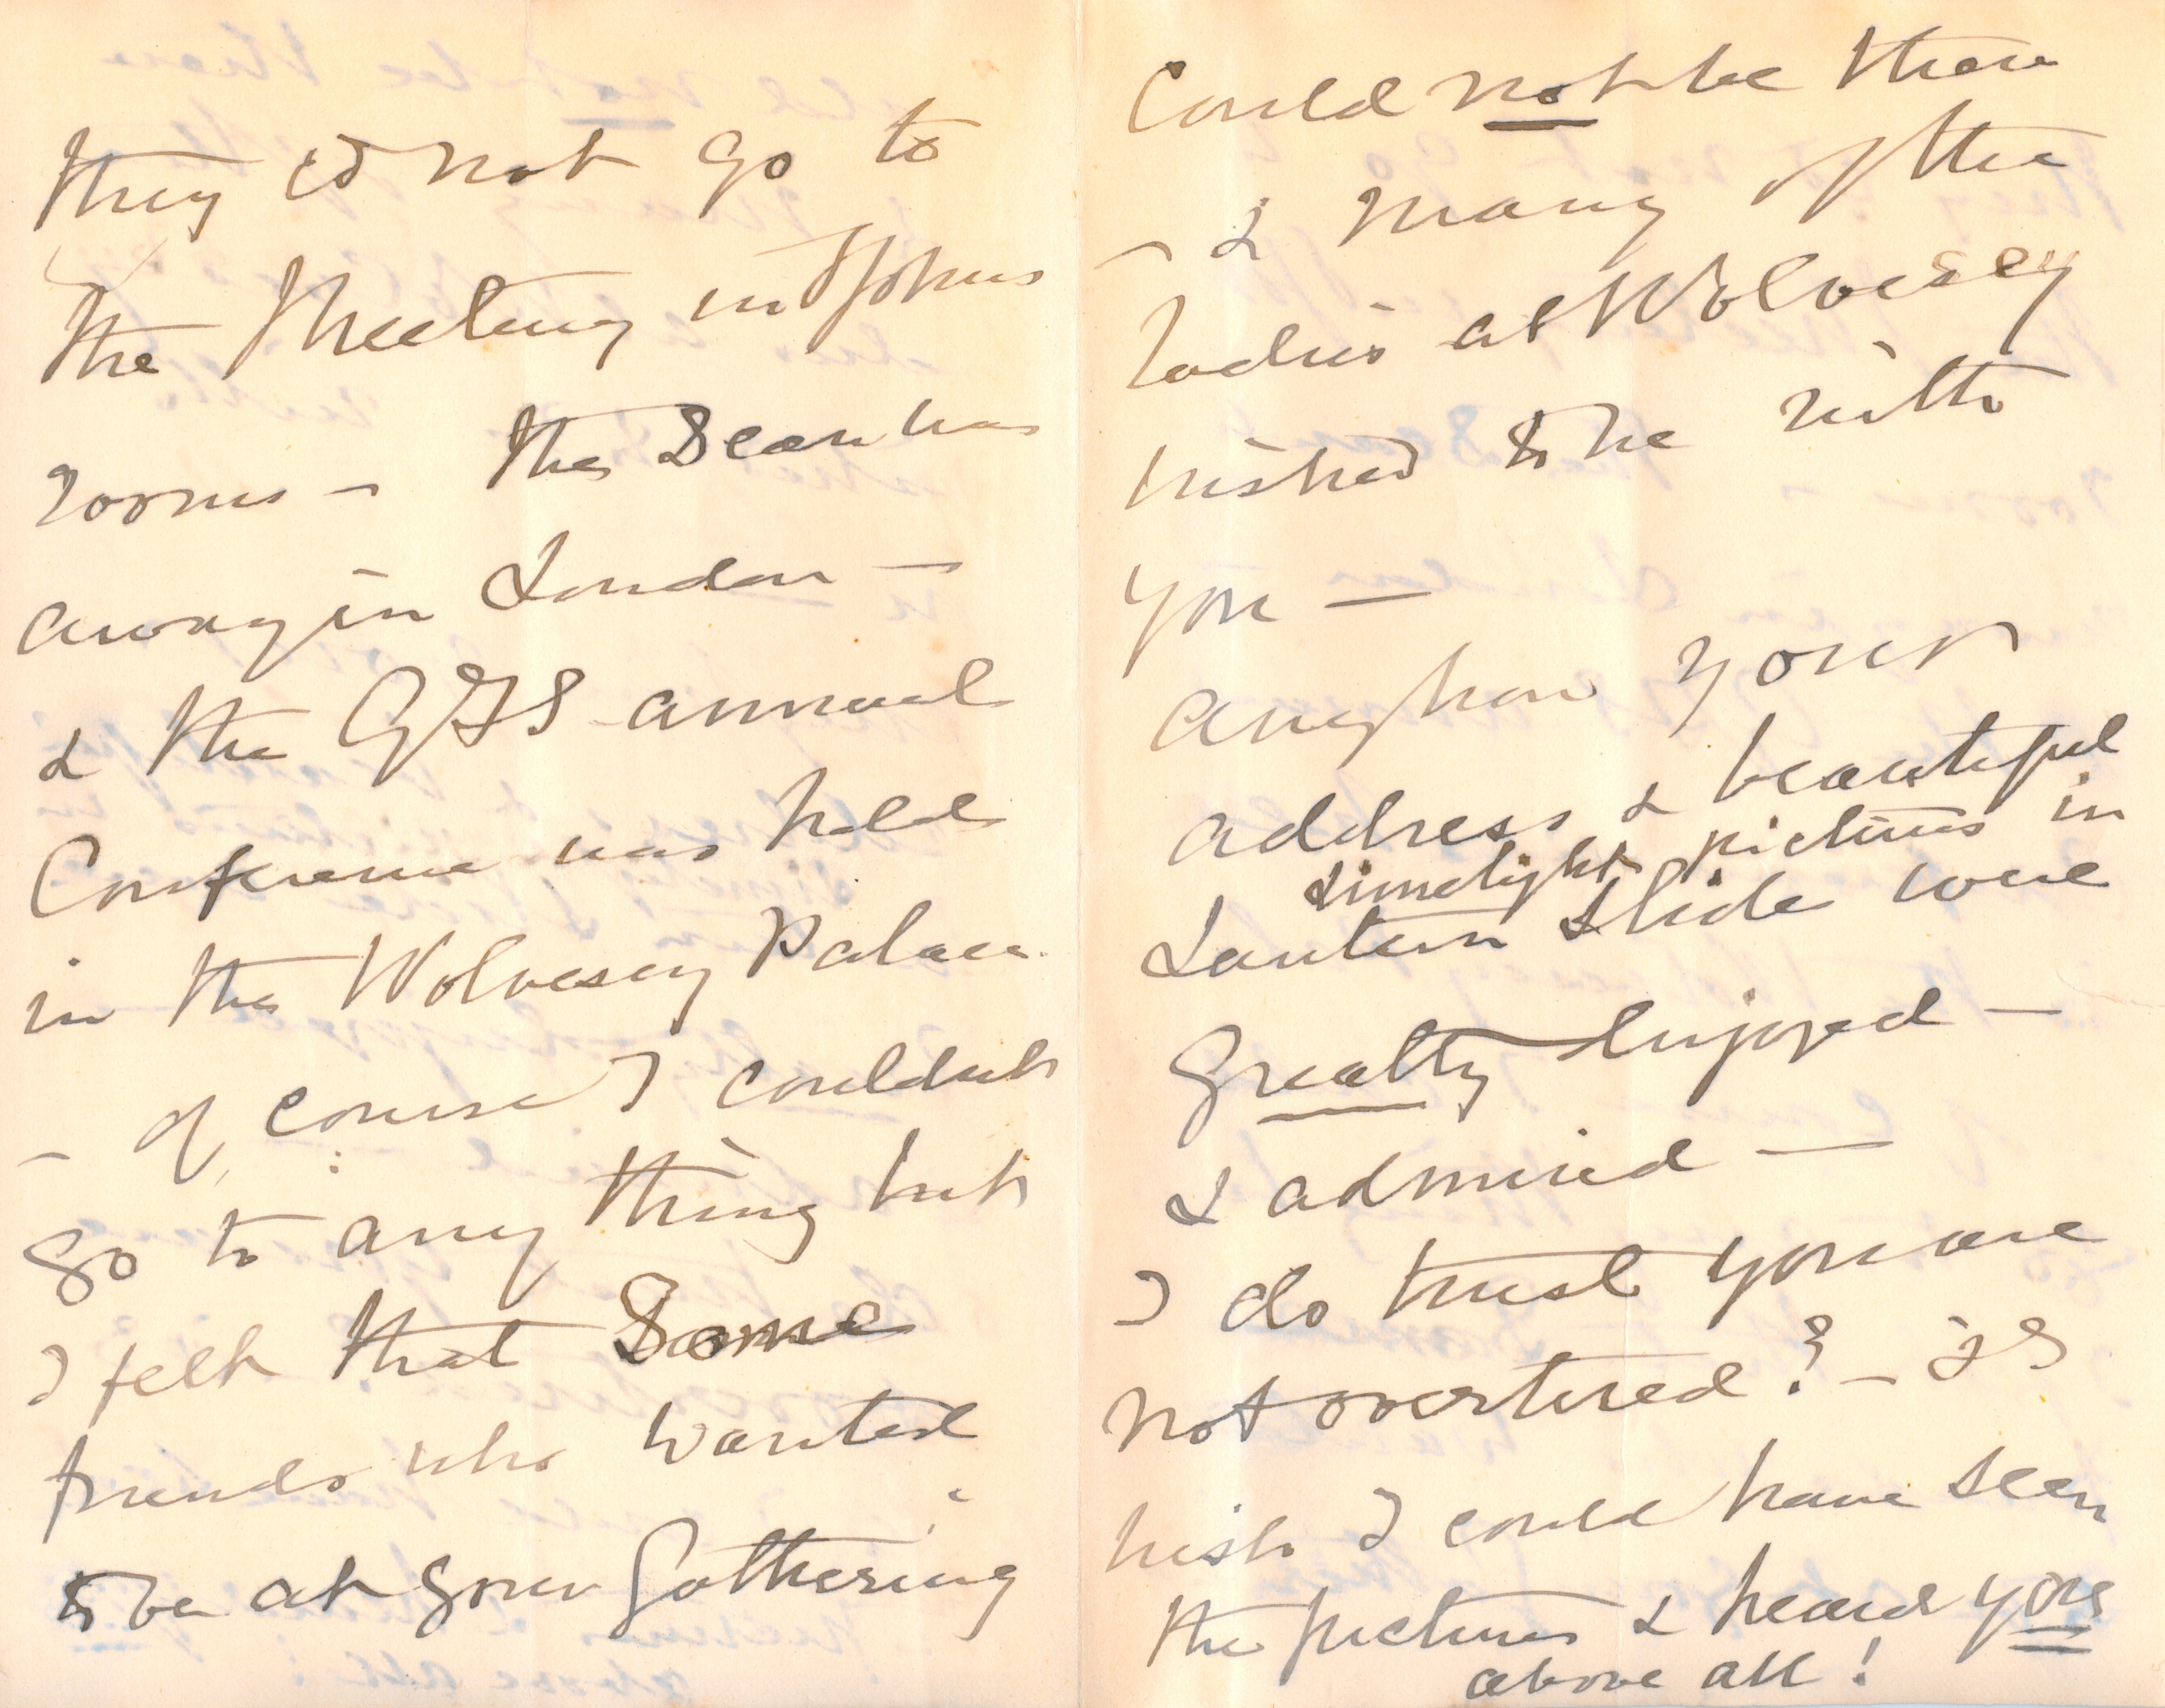 they cd not go to
the Meeting in St Johns
rooms – the Dean was
away in London –
& the GFS annual
Conference was held
in the Wolvesey Palace.
– of course I couldnt
go to any thing but
I felt that Some
friends who wanted
to be at your Gathering
Could not be there
– & many of the
ladies at Wolvesey
wished to be with
you –
anyhow your
address & beautiful
Limelight pictures in
Lantern Slide were
Greatly Enjoyed –
& admired –
I do trust you are
not overtired? – I
wish I could have seen
the pictures & heard you
above all!